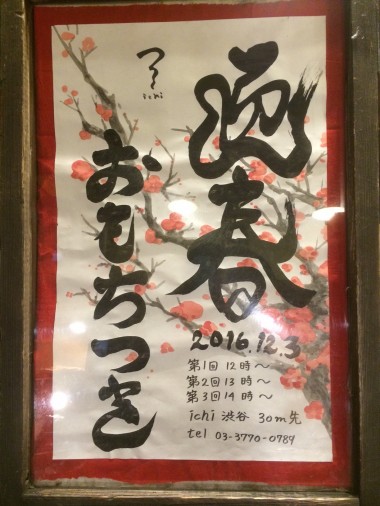 迎春
おもちつき
ichi
2016.12.3
第1回 12時〜
第2回 13時〜
第3回 14時〜
ichi 渋谷 30m先
tel 03-3770-0784